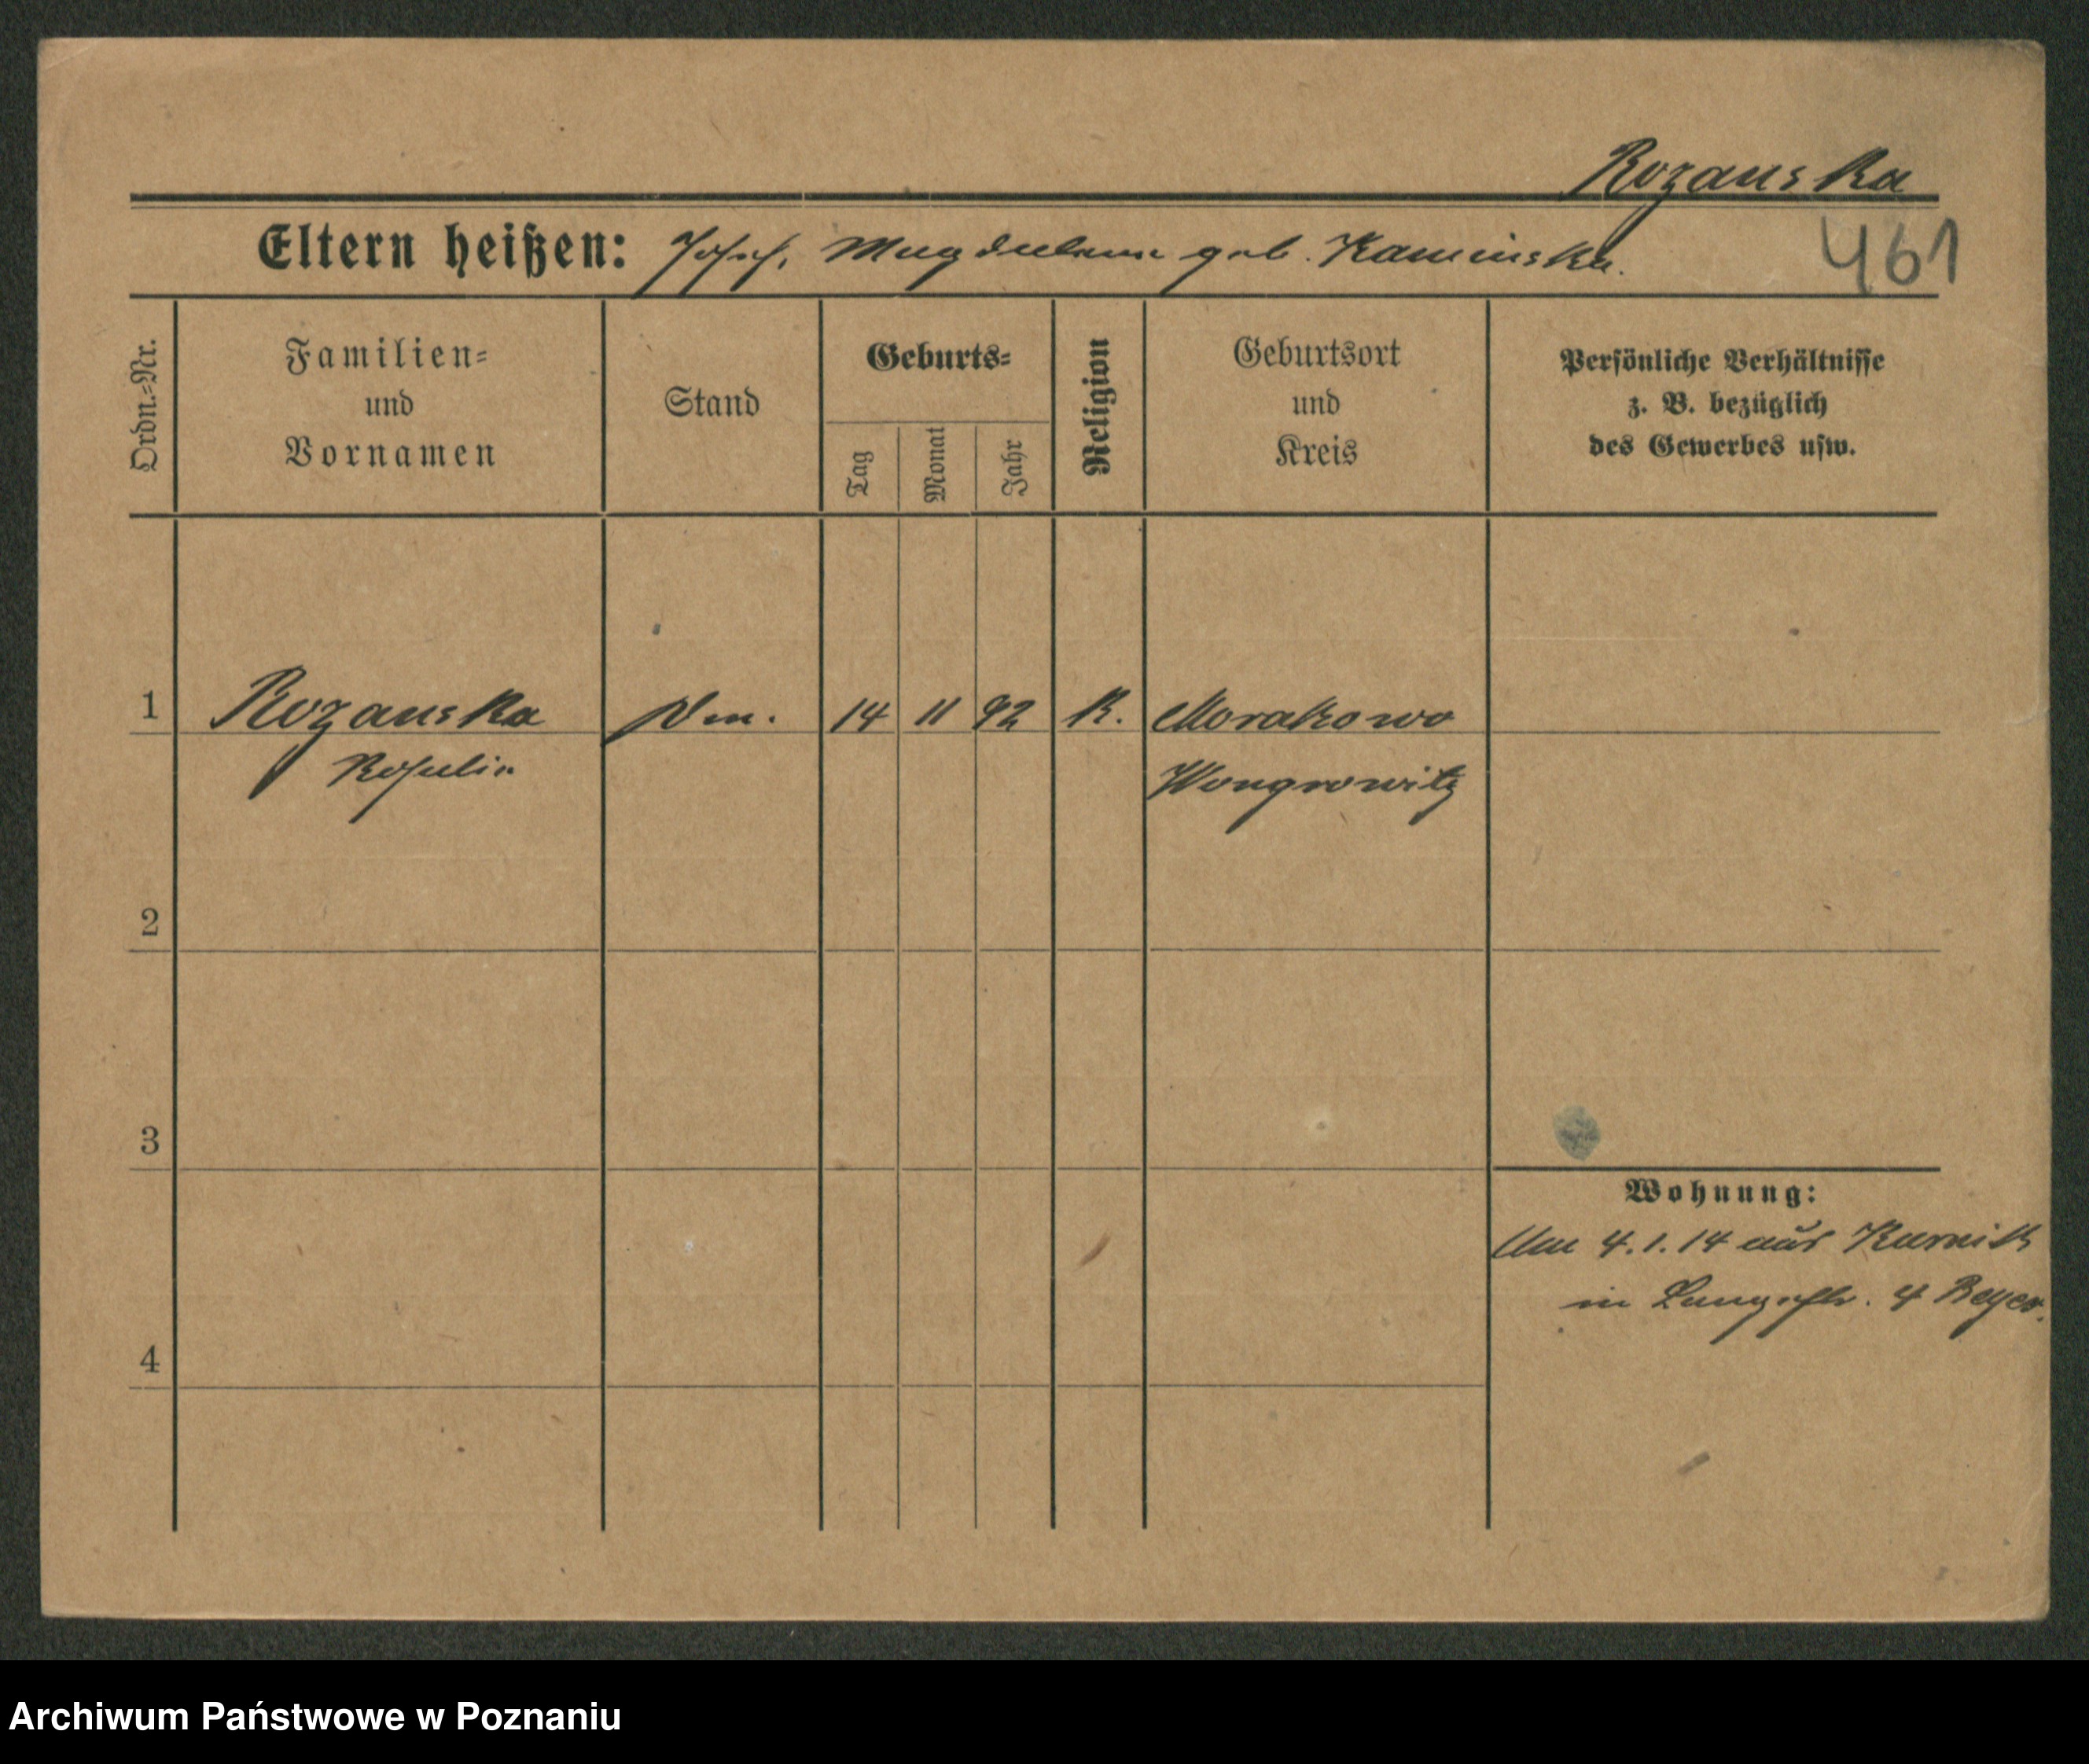 Rozanska
Eltern heißen: Josef, Magdalena geb. Kaminska.
461
Ordn.-Nr.
Familien-
und
Vornamen
Stand
Geburts-
Tag
Monat
Jahr
Religion
Geburtsort
und
Kreis
Persönliche Verhältnisse
z. B. bezüglich
des Gewerbes usw.
1 Rozanska 14 11 92 K. Morakowo
Rosalia Wongrowitz
2
3
Wohnung:
Am 4.1.14 aus Kurnik
in Langestr. 4 Beyer.
4
Archiwum Państwowe w Poznaniu